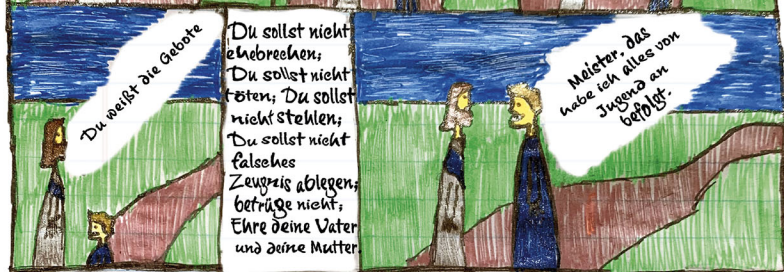 Du weißt die Gebote
Du sollst nicht
ehebrechen;
Du sollst nicht
töten; Du sollst
nicht stehlen;
Du sollst nicht
falsches
Zeugnis ablegen;
betrüge nicht;
Ehre deine Vater
und deine Mutter.
Meister, das
habe ich alles von
Jugend an
befolgt.